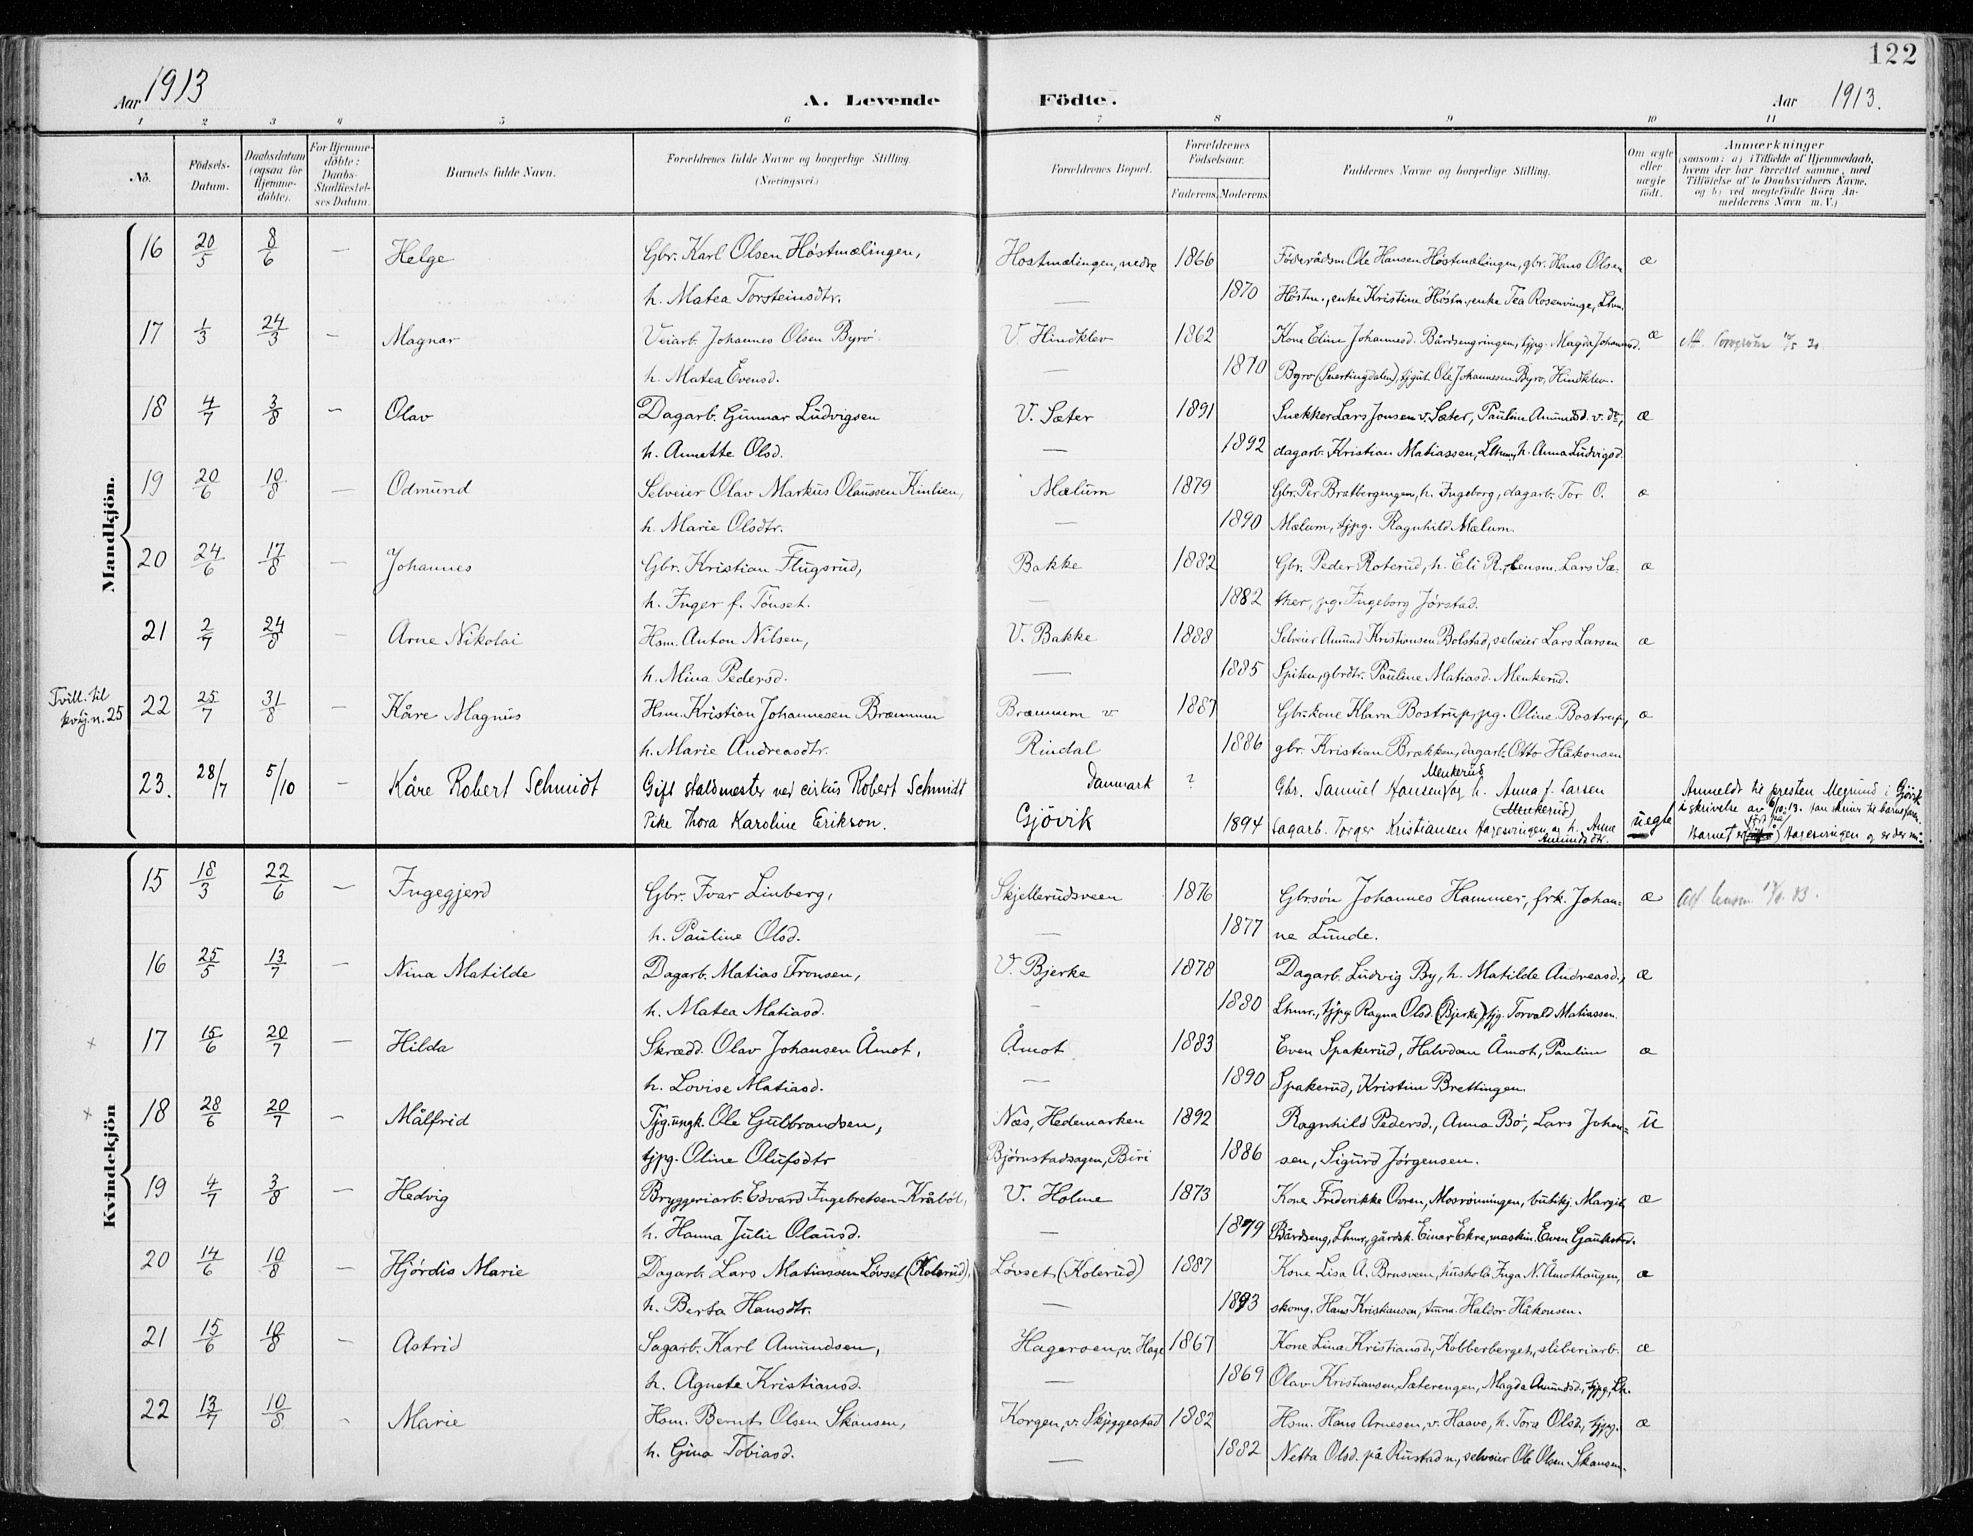 122
Aar 1913 A. Levende Födte. Aar 1913.
1 2 3 4 5 6 7 8 9 10 11
No. Födsels-Datum. Daabsdatum (ogsaa for Hjemme-döbte). For Hjemme-döbte: Daabs-Stadfæstel-ses Datum. Barnets fulde Navn. Forældrenes fulde Navne og borgerlige Stilling. (Næringsvei.) Forældrenes Bopæl. Forældrenes Födselsaar. Faderens Moderens Faddernes Navne og borgerlige Stilling. Om ægte eller uægte födt. Anmærkninger (saasom: a) i Tilfælde af Hjemmedaab, hvem der har forrettet samme, med Tilföielse af to Daabsvidners Navne, og b) ved uegtefödte Börn An-melderens Navn m. V.)
Mandkjön.
16 20/5 8/6 — Helge Gbr. Karl Olsen Høstmælingen, Høstmælingen, nedre 1866 Föderådsm Ole Hansen Höstmælingen, gbr. Hans Olsen æ
h. Matea Torsteinsdtr. — 1870 Höstm., enke Kristine Höstm., enke Tea Rosenvinge, Lhm.
17 1/3 24/3 — Magnar Veiarb. Johannes Olsen Byrö V. Hindklev 1862 Kone Eline Johannesd. Bårdsengringen, tjpg. Magda Johannesd. æ
h. Matea Evensd. — 1870 Byrö (Snertingdalen), tjgut Ole Johannesen Byrö, Hindklev.
18 4/7 3/8 — Olav Dagarb. Gunnar Ludvigsen V. Sæter 1891 Snekker Lars Jonsen v. Sæter, Pauline Amundsd. v. do, æ
h. Annette Olsd. — 1892 dagarb. Kristian Matiassen, Lhmr, h. Anna Ludvigsd.
19 20/6 10/8 — Odmund Selveier Olav Markus Olaussen Kinlien, Mælum 1879 Gbr. Per Bratbergengen, h. Ingeborg, dagarb. Tor O. æ
h. Marie Olsdtr. — 1890 Mælum, tjpg. Ragnhild Mælum.
20 24/6 17/8 — Johannes Gbr. Kristian Flugsrud, Bakke 1882 Gbr. Peder Roterud, h. Eli R., lensm. Lars Sæ- æ
h. Inger f. Tönset. — 1882 ther, pg. Ingeborg Jörstad.
21 2/7 24/8 — Arne Nikolai Hsm. Anton Nilsen, V. Bakke 1888 Selveier Amund Kristiansen Bolstad, selveier Lars Larsen æ
h. Mina Pedersd. — 1885 Spiten, gbrdtr. Pauline Matiasd. Menkerud.
Tvill. til
kvkj. n. 25
22 25/7 31/8 — Kåre Magnus Hsm. Kristian Johannesen Bræmmm Bræmmm v 1887 Gbr.kone Klara Bostrup, pg. Oline Bostrup, æ
h. Marie Andreasdtr. Rindal 1886 gbr. Kristian Brækken, dagarb. Otto Håkonsen
23. 28/7 5/10 — Kåre Robert Schmidt Gift staldmester ved cirkus Robert Schmidt Danmark ? Gbr. Samuel Hansen Menkerud og h. Anna f. Larsen Anmeldt til presten Megrund i Gjövik
Pike Thora Karoline Erikson. Gjövik 1894 (Menkerud) Sagarb. Torger Kristiansen Hageseringen og h. Anne Amundsdtr. uegte i skrivelse av 6/10.13.
Barnet er
Kvindekjön
15 18/3 22/6 — Ingegjerd Gbr. Ivar Linberg, Skjellerudsveen 1876 Gbrsön Johannes Hammer, frk. Johan- æ
h. Pauline Olsd. — 1877 ne Lunde.
16 25/5 13/7 — Nina Matilde Dagarb. Matias Fronsen, V. Bjerke 1878 Dagarb. Ludvig By, h. Matilde Andreasd., æ
h. Matea Matiasd. — 1880 Lhmr., tjpg. Ragna Olsd. (Bjerke), tjg. Torvald Matiassen.
x
17 15/6 20/7 — Hilda Skrædd. Olav Johansen Åmot, Åmot 1883 Even Spakerud, Halvdan Åmot, Pauline æ
h. Lovise Matiasd. — 1890 Spakerud, Kristine Brettingen
x
18 28/6 20/7 — Målfrid Tjg.ungk. Ole Gulbrandsen, Næs, Hedemarken 1892 Ragnhild Pedersd., Anna Bö, Lars Johan- u
tjpg. Oline Olufsdtr Björnstadsagen, Biri 1886 sen, Sigurd Jörgensen.
19 4/7 3/8 — Hedvig Bryggeriarb. Edvard Ingebretsen Kråböl, V. Holme 1873 Kone Frederikke Owren, Mosrönningen, butikj. Margit æ
h. Hanna Julie Olausd. — 1879 Bårdseng, Lhmr, gårdsk. Einar Ekre, maskin. Even Gaukstad.
20 14/6 10/8 — Hjördis Marie Dagarb. Lars Matiassen Lövset (Kolerud), Lövset (Kolerud) 1887 Kone Lisa A. Brusveen, hushold. Inga N. Åmothaugen, æ
h. Berta Hansdtr. — 1893 skomg. Hans Kristiansen, tmrm. Haldor Håkonsen.
21 15/6 10/8 — Astrid Sagarb. Karl Amundsen, Hageroen, v. Hage 1867 Kone Lina Kristiansd., Kobberberget, sliberiarb. æ
h. Agnete Kristiansd. — 1869 Olav Kristiansen, Sæterengen, Magda Amundsd., tjpg, Lh.
22 13/7 10/8 — Marie Hsm. Bernt Olsen Skansen, Korgen, v. Skjeggestad 1882 Hsm. Hans Arnesen, v. Haave, h. Tora Olsd., tjpg. æ
h. Gina Tobiasd. — 1882 Netta Olsd. på Rustad n., selveier Ole Olsen Skansen.